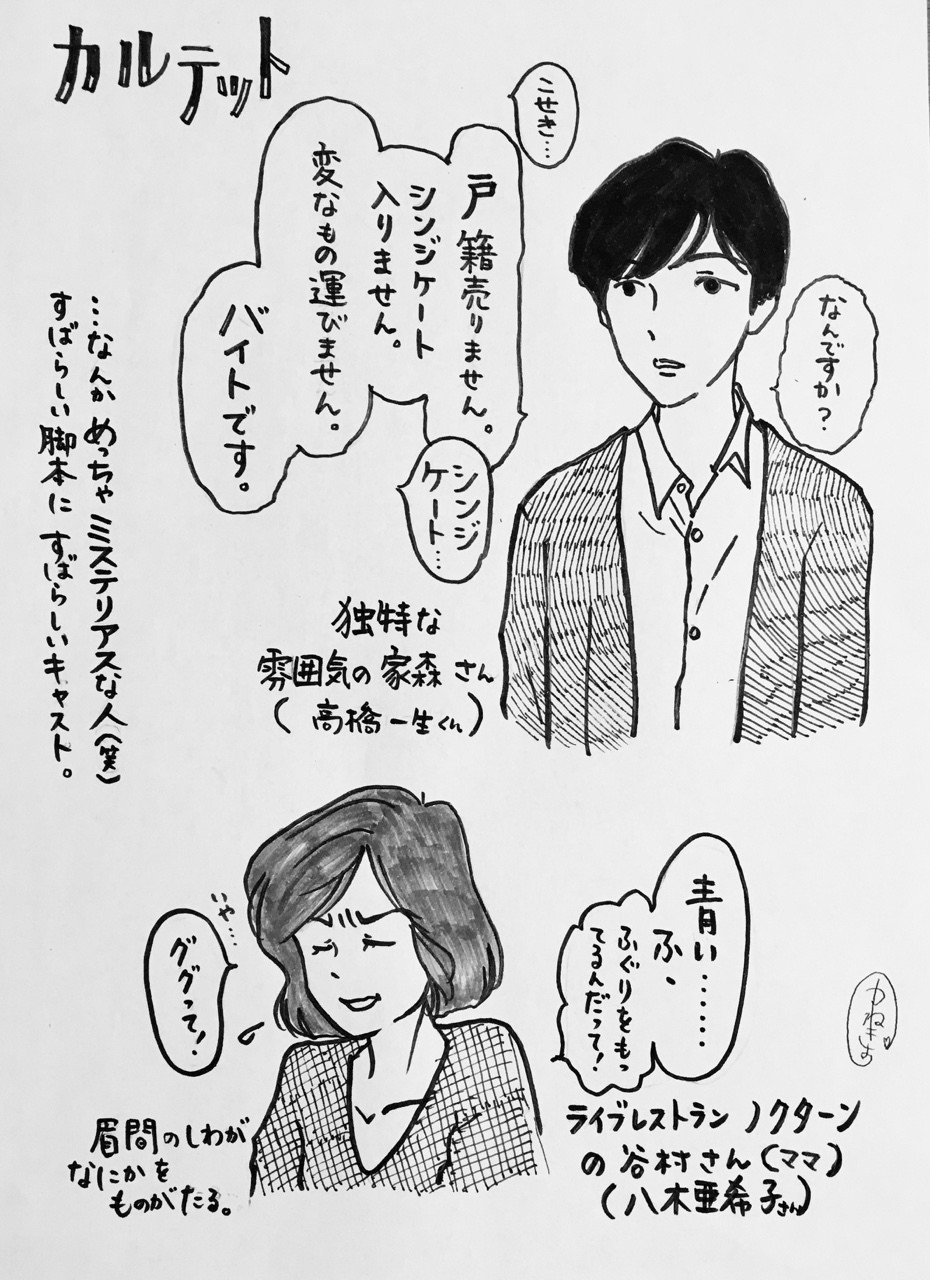 カルテット
こせき…
戸籍売りません。
シンジケート
入りません。
変なもの運びません。
バイトです。
シンジ
ケート…
なんですか?
…なんかめっちゃミステリアスな人(笑)
すばらしい脚本にすばらしいキャスト。
独特な
雰囲気の家森さん
(高橋一生くん)
青い……
ふ、
ふぐりをもっ
てるんだって!
いや…
ググって!
眉間のしわが
なにかを
ものがたる。
ライブレストラン ノクターン
の谷村さん(ママ)
(八木亜希子さん)